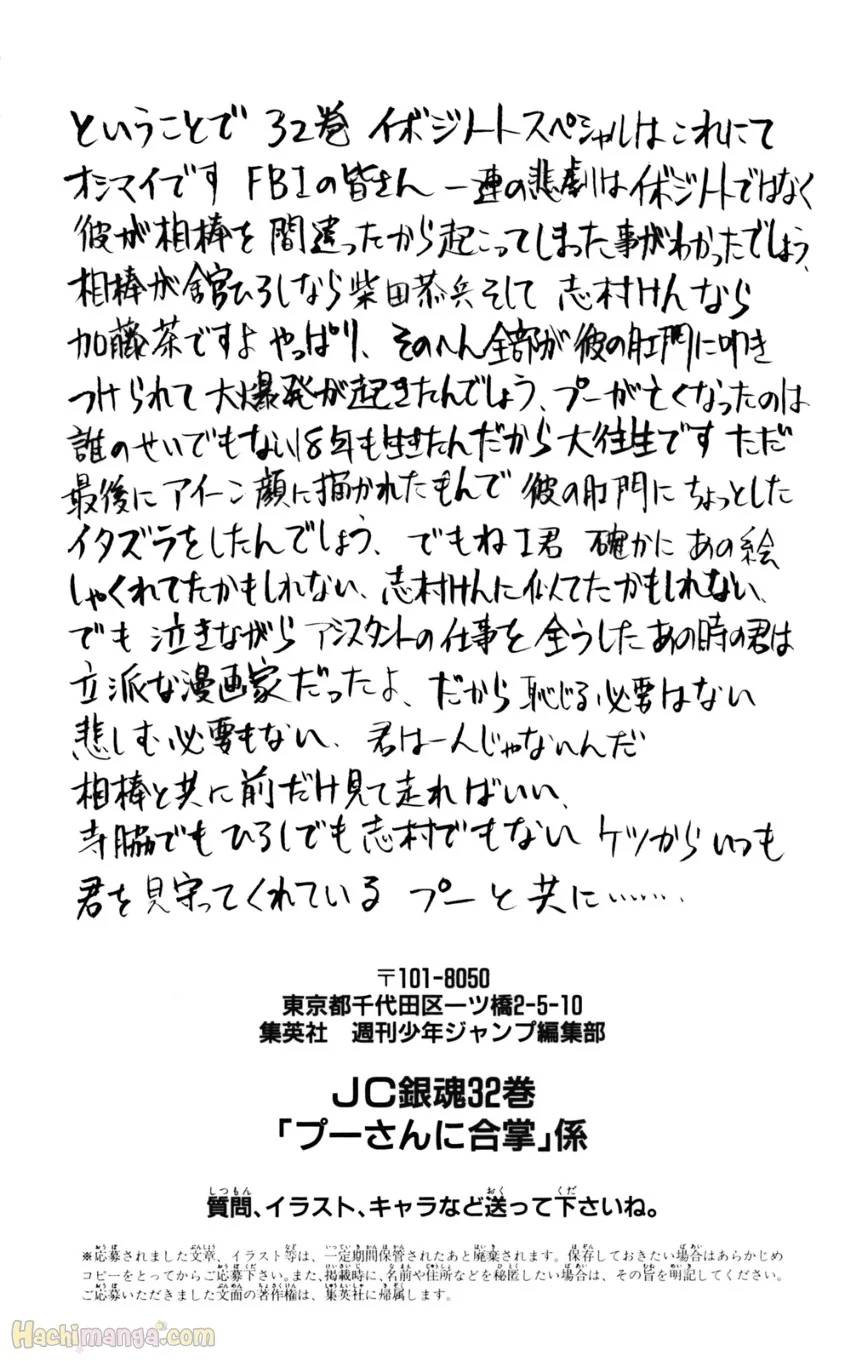 ということで 32巻 イボジノートスペシャルはこれにて
オシマイです FBIの皆さん 一連の悲劇はイボジノートではなく
彼が相棒を間違ったから起こってしまった事がわかったでしょう、
相棒が舘ひろしなら柴田恭兵そして 志村けんなら
加藤茶ですよ やっぱり、そのへん全部が彼の肛門に叩き
つけられて大爆発が起きたんでしょう、プーが亡くなったのは
誰のせいでもない18年も生きたんだから大往生です ただ
最後にアイーン顔に描かれたもんで 彼の肛門にちょっとした
イタズラをしたんでしょう、でもねI君 確かにあの絵
しゃくれてたかもしれない、志村けんに似てたかもしれない、
でも 泣きながらアシスタントの仕事を全うしたあの時の君は
立派な漫画家だったよ、だから恥じる必要はない
悲しむ必要もない、君は一人じゃないんだ
相棒と共に前だけ見て走ればいい、
寺脇でもひろしでも志村でもない ケツからいつも
君を見守ってくれている プーと共に……
〒101-8050
東京都千代田区一ツ橋2-5-10
集英社 週刊少年ジャンプ編集部
JC銀魂32巻
「プーさんに合掌」係
質問、イラスト、キャラなど送って下さいね。
※応募されました文章、イラスト等は、一定期間保管されたあと廃棄されます。保存しておきたい場合はあらかじめ
コピーをとってからご応募下さい。また、掲載時に、名前や住所などを秘匿したい場合は、その旨を明記してください。
ご応募いただきました文面の著作権は、集英社に帰属します。
Hachimanga.com